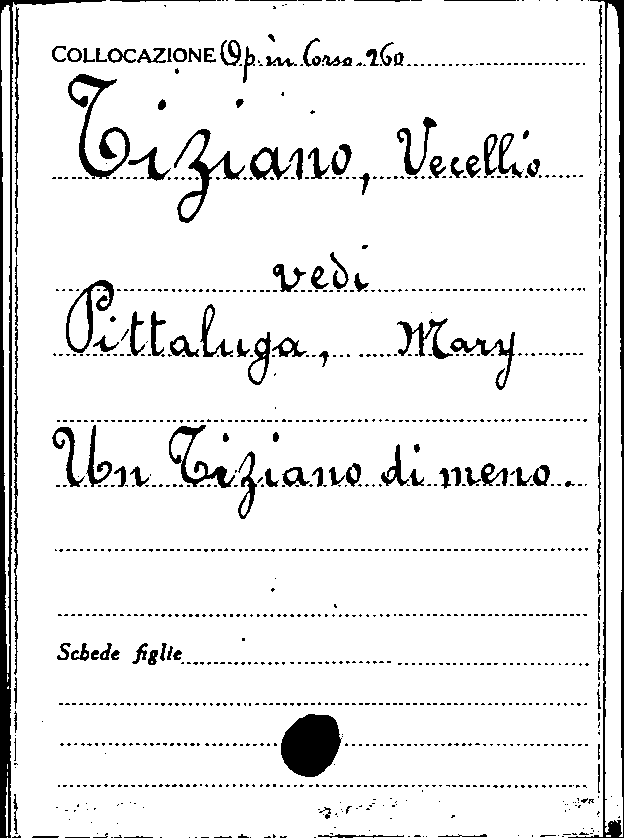 COLLOCAZIONE Op. in Corso. 260
Tiziano, Vecellio
vedi
Pittaluga, Mary
Un Tiziano di meno.
Schede figlie